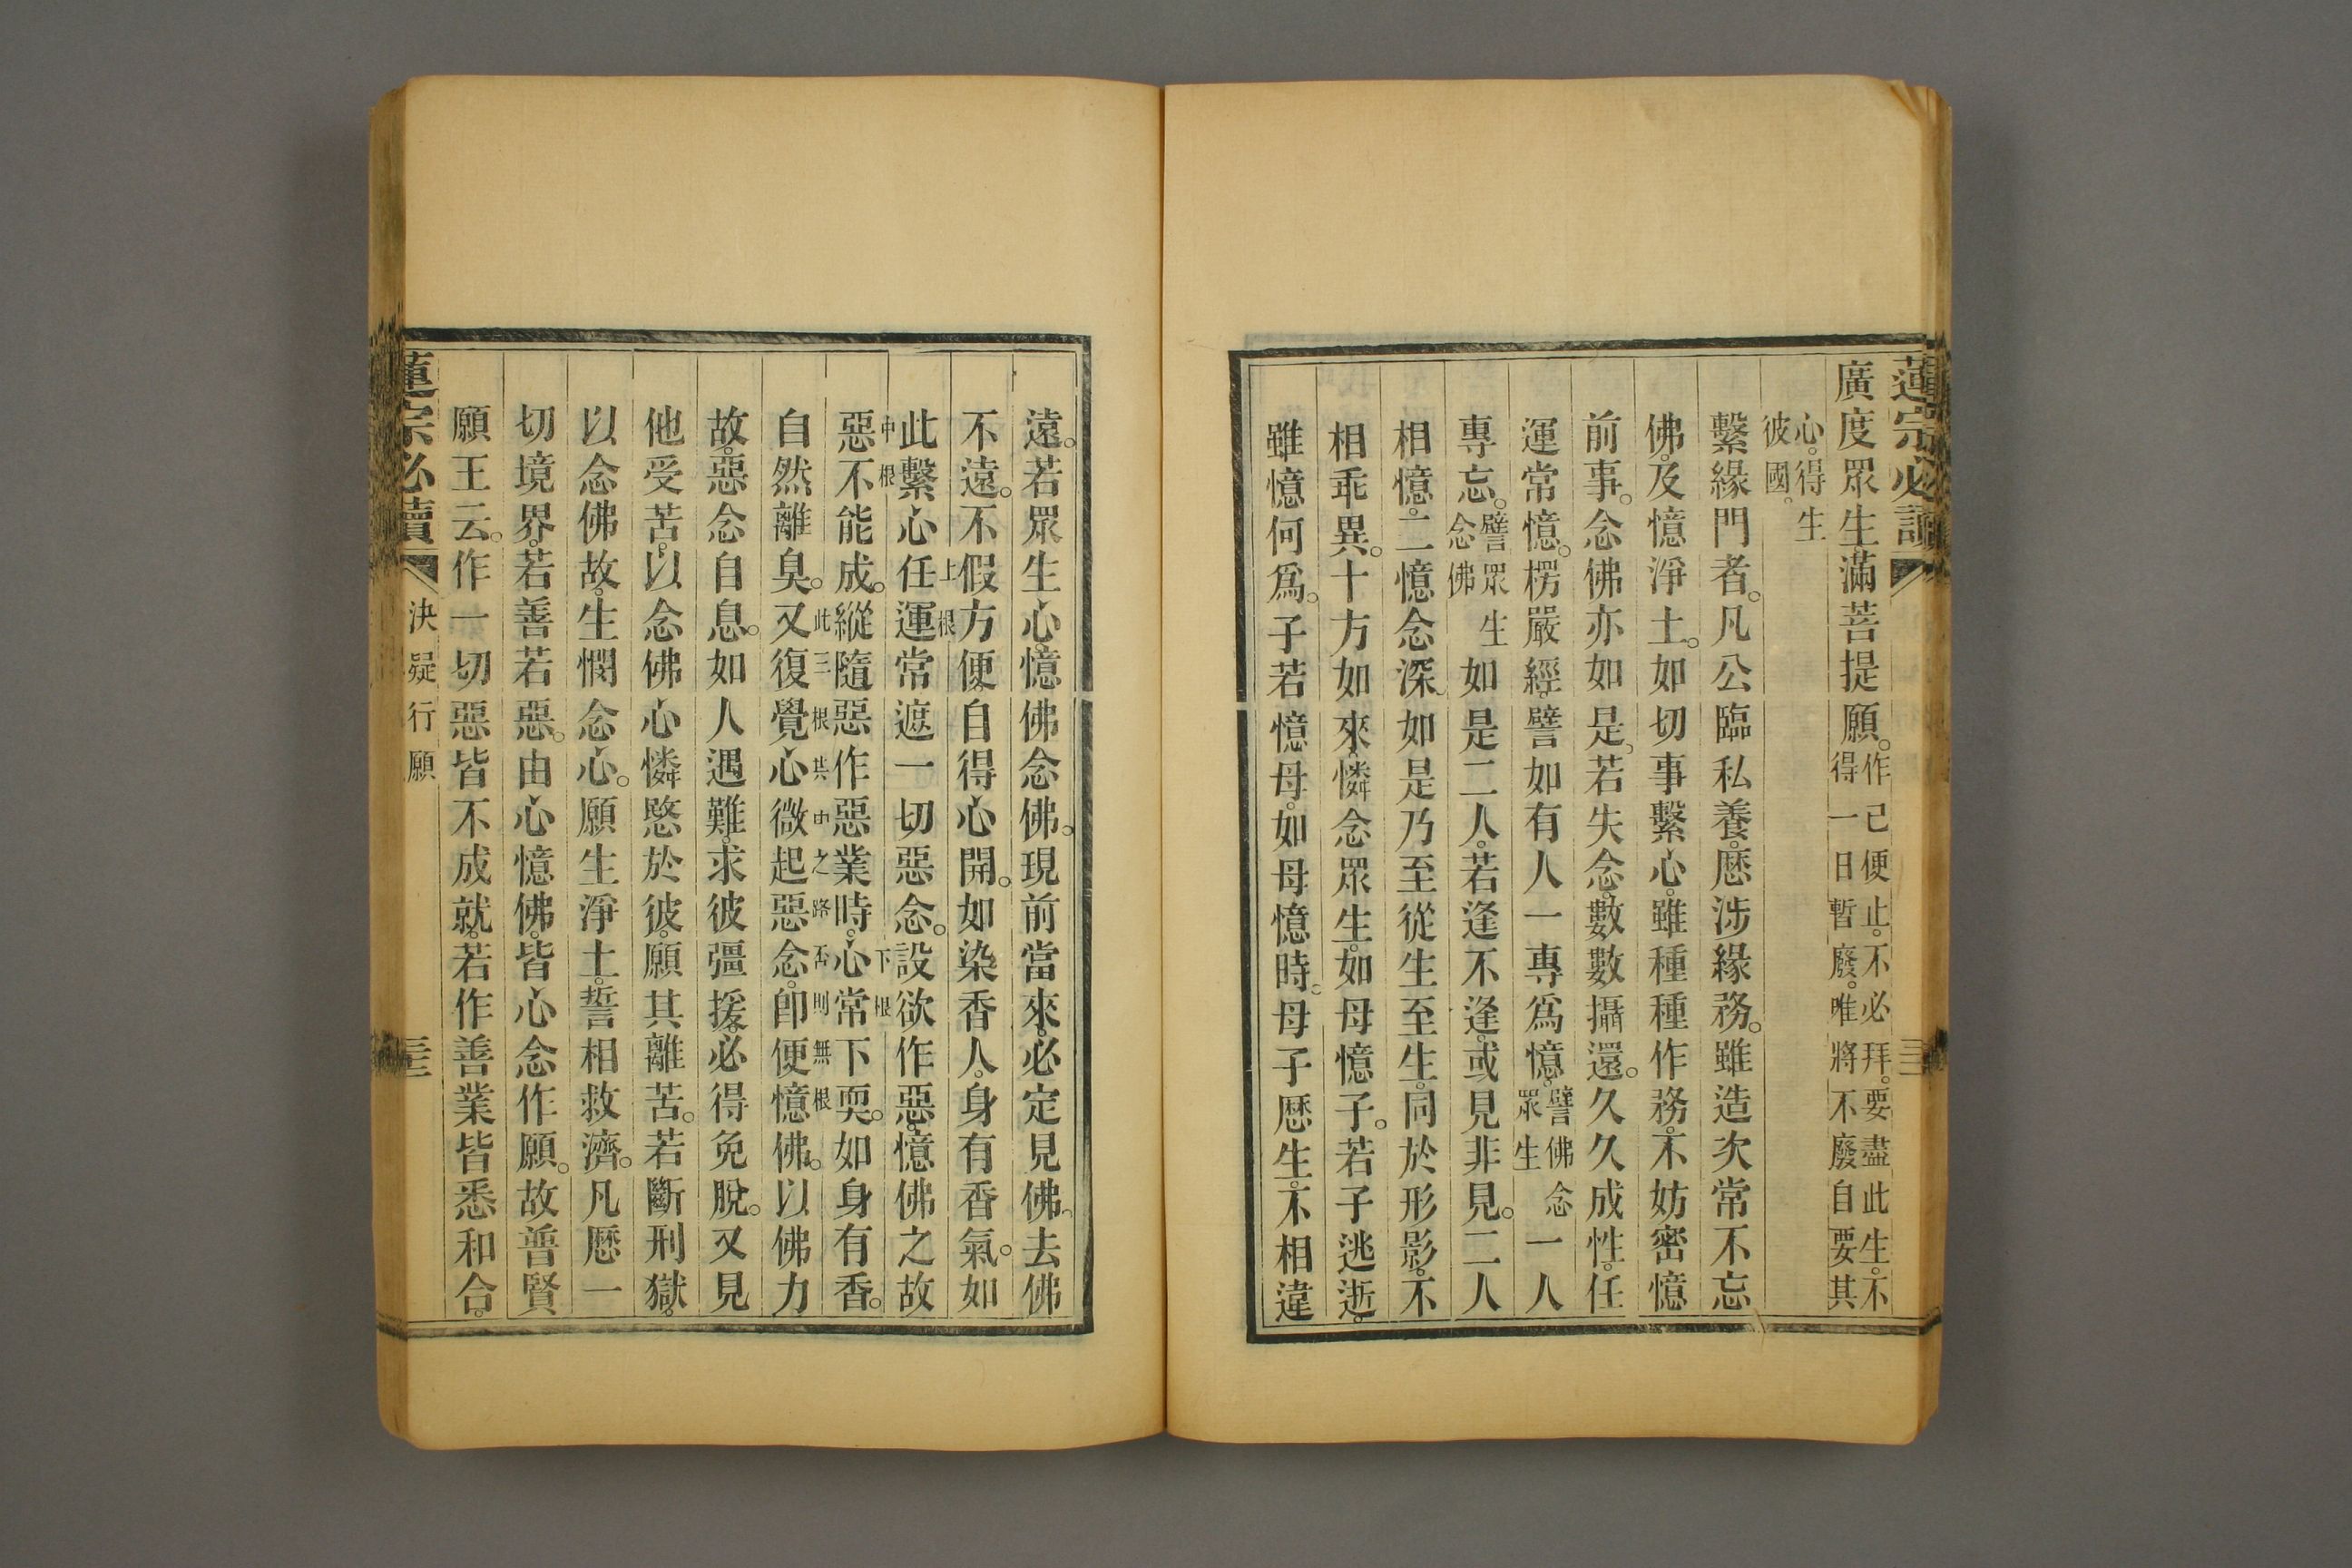 蓮宗必讀
三三
廣度眾生滿菩提願。作己便止。不必拜。要盡此生。不得一日暫廢。唯將不廢自要其
心。得生彼國。
繫緣門者。凡公臨私養。歷涉緣務。雖造次常不忘
佛。及憶淨土。如切事繫心。雖種種作務。不妨密憶
前事。念佛亦如是。若失念。數數攝還。久久成性。任
運常憶。楞嚴經。譬如有人一專為憶。譬佛念眾生一人
專忘。譬眾生念佛如是二人。若逢不逢。或見非見。二人
相憶。二憶念深。如是乃至從生至生。同於形影。不
相乖異。十方如來。憐念眾生。如母憶子。若子逃逝。
雖憶何為。子若憶母。如母憶時。母子歷生。不相違
遠。若眾生心。憶佛念佛。現前當來。必定見佛。去佛
不遠。不假方便。自得心開。如染香人。身有香氣。如
上根
此繫心任運常遮一切惡念。設欲作惡。憶佛之故
中根 下根
惡不能成。縱隨惡作惡業時。心常下耎。如身有香。
此三根共由之路否則無根
自然離臭。又復覺心微起惡念。即便憶佛。以佛力
故。惡念自息。如人遇難。求彼彊援。必得免脫。又見
他受苦。以念佛心憐愍於彼。願其離苦。若斷刑獄。
以念佛故。生憫念心。願生淨土。誓相救濟。凡歷一
切境界。若善若惡。由心憶佛。皆心念作願。故普賢
願王云。作一切惡皆不成就。若作善業皆悉和合。
蓮宗必讀
決疑行願
三三